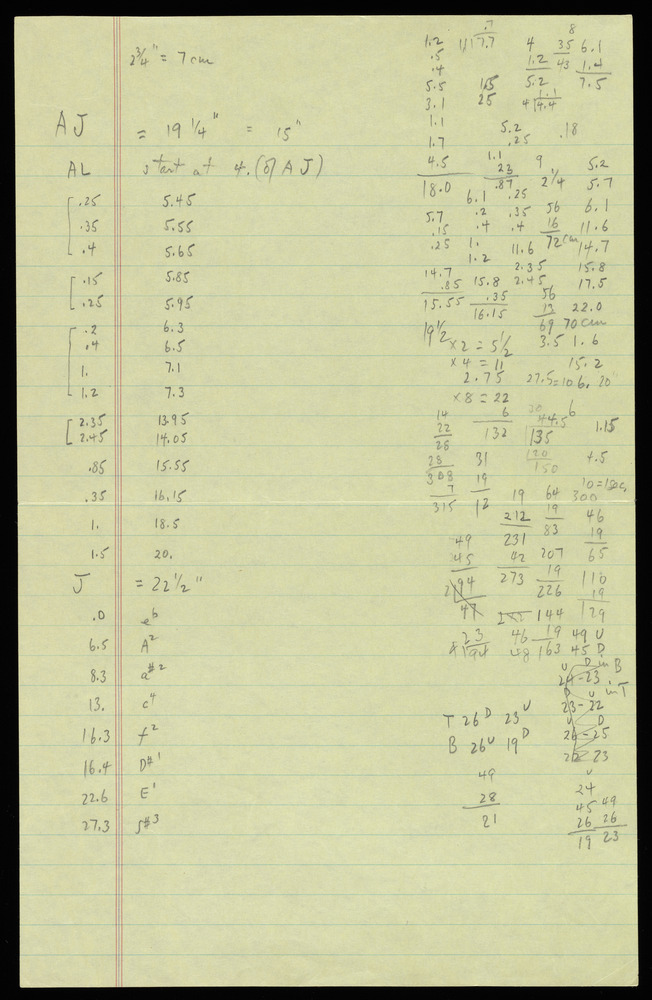 2 3/4" = 7 cm
AJ = 19 1/4" = 15"
AL start at 4. (of AJ)
.25 5.45
.35 5.55
.4 5.65
.15 5.85
.25 5.95
.2 6.3
.4 6.5
1. 7.1
1.2 7.3
2.35 13.95
2.45 14.05
.85 15.55
.35 16.15
1. 18.5
1.5 20.
J = 22 1/2"
.0 e♭
6.5 A²
8.3 a#²
13. c⁴
16.3 f²
16.4 D#¹
22.6 E¹
27.3 f#³
.7
1.2 11 7.7 4 35 6.1
.5 1.2 43 1.4
.4 5.2 7.5
5.5 1.1
3.1 25 4 4.4
1.1 5.2 .18
1.7 .25
4.5 1.1 9 5.2
18.0 .87 2 1/4 5.7
6.1 .25 6.1
5.7 .2 .35 56
.15 .4 .4 16 11.6
.25 1. 11.6 72 cm 14.7
1.2 2.35 15.8
14.7 2.45 17.5
.85 15.8 56
15.55 .35 13 22.0
16.15 69 70 cm
19 1/2 x 2 = 5 1/2 3.5 1.6
x 4 = 11 15.2
2.75 27.5 = 106. 20"
x 8 = 22
14 6 44.5
22 132 135 1.15
28 120
28 31 150 4.5
308 19 10 = 1 sec.
7 19 64 300
315 12 212 19 46
231 83 19
49 42 207 65
45 273 19 110
194 226 19
47 144 129
23 46 19 49 U
4 194 48 163 45 D
U D in B
24-23
D U in T
23-22
T 26 D 23 U U D
B 26 U 19 D 26-25
22 23
49 U
28 24
21 45 49
26 26
19 23